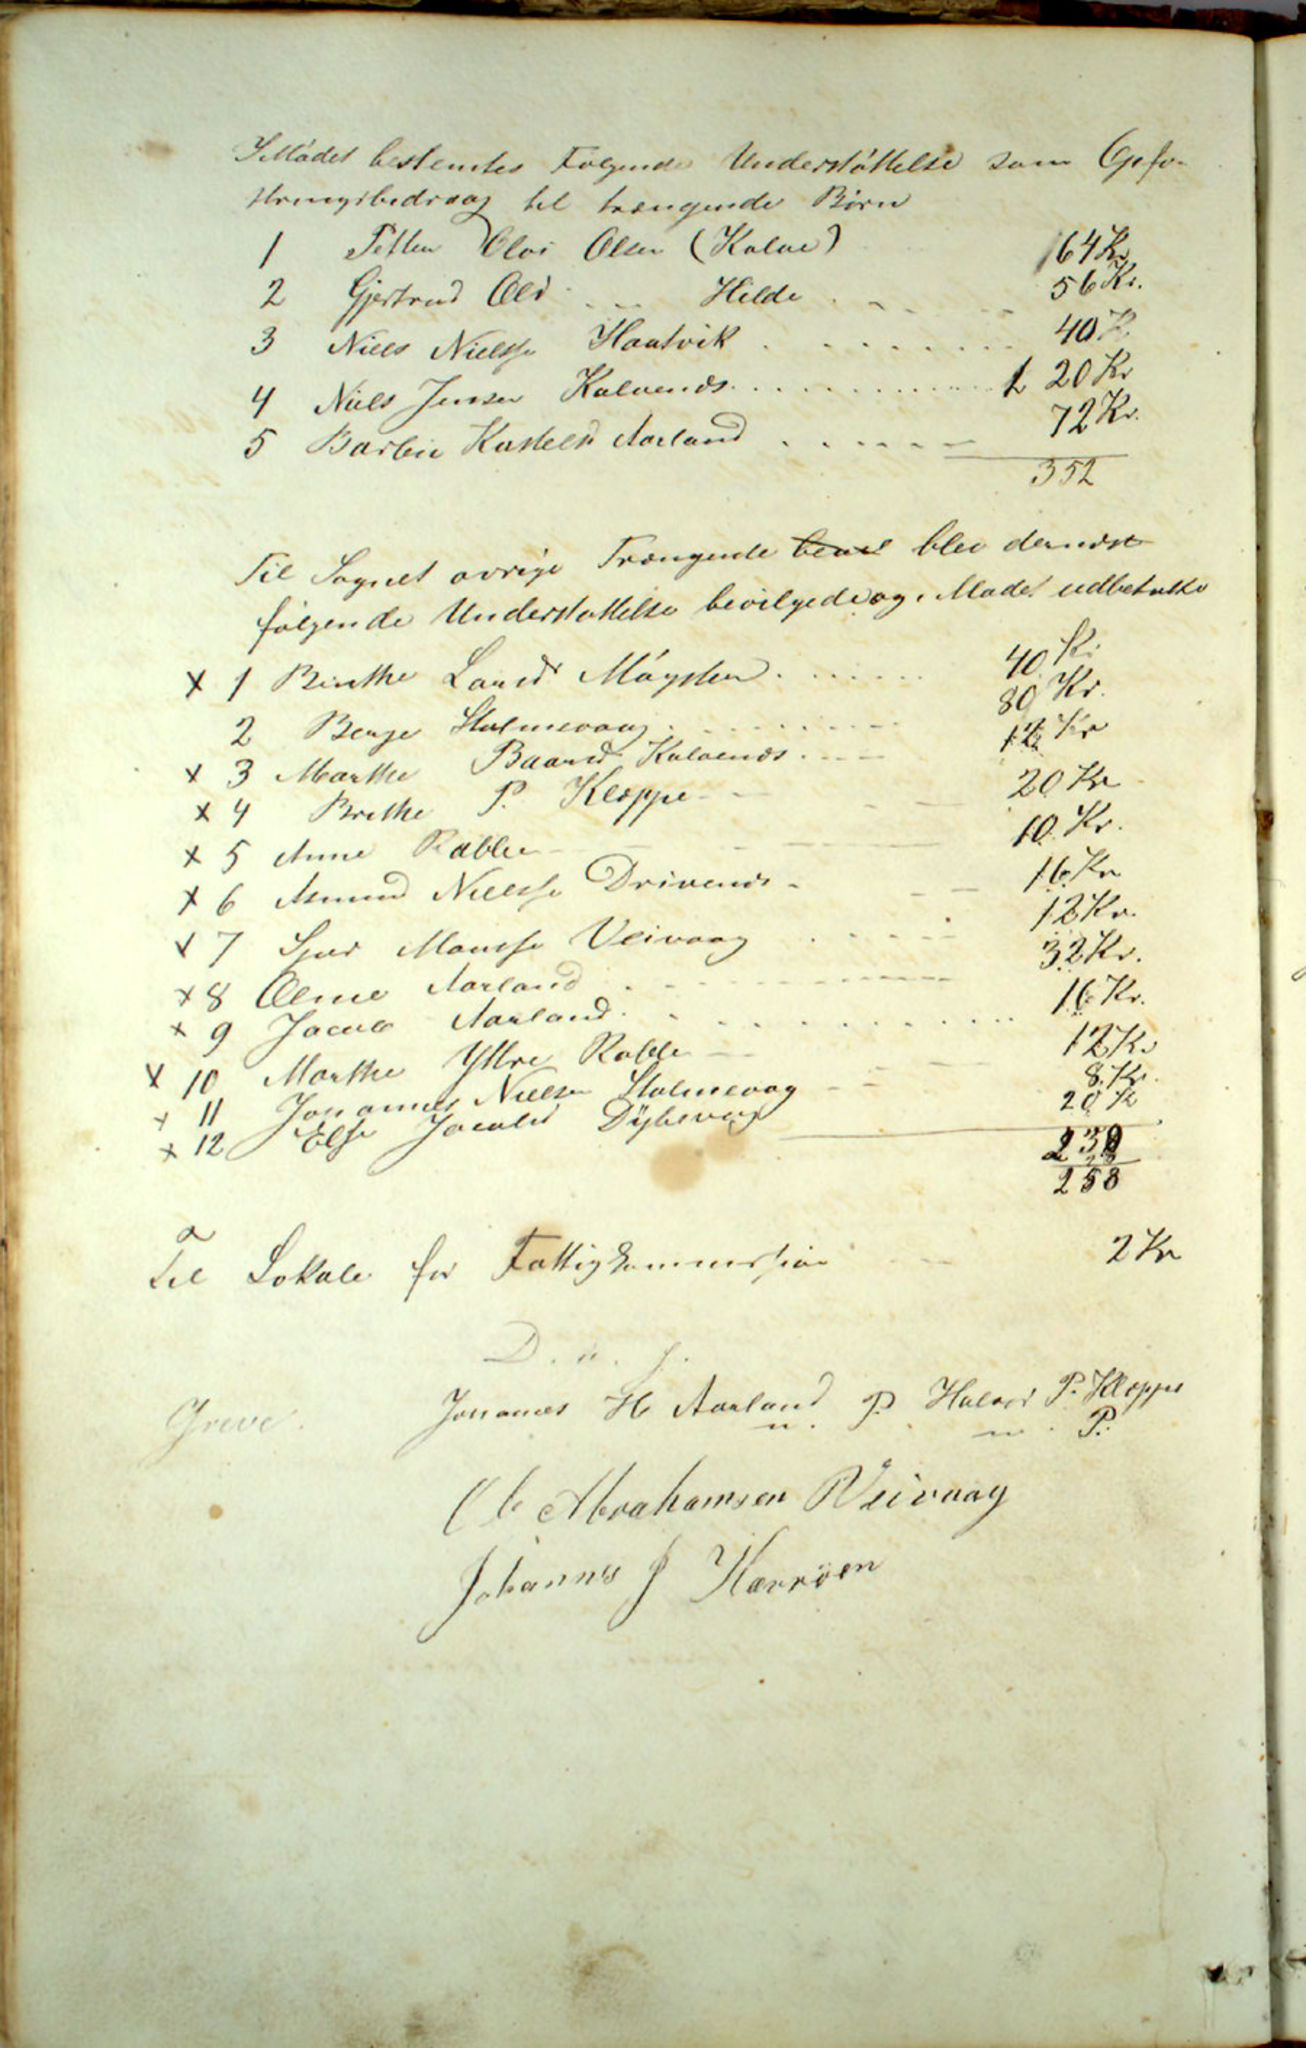 I Mødet bestemtes Følgende Understøttelse som Opfo-
stringsbidraag til trængende Børn
1 Petter Olai Olsen (Kalve) 164 Kr
2 Gjertrud Olsd. Hilde 56 Kr.
3 Niels Nielss Haatvik 40 K.
4 Niels Jensen Kalvenæs 20 Kr
5 Barbro Aarland 72 Kr.
352
Til Sognets øvrige Trængende blev dernæst
følgende Understøttelse bevilgede og i Mødet udbetalte
x 1 Brithe Larsd Møgster 40 Kr
2 Berge Stolmevaag 80 Kr.
x 3 Marthe Baardsd Kalvenæs 12 Kr
x 4 Brithe P. Kleppe 20 Kr
x 5 Anne Rabben 10 Kr.
x 6 Asmund Nielss Drivenæs 16 Kr
x 7 Sjur Monss Veivaag 12 Kr.
x 8 Oline Aarland 32 Kr.
x 9 Jacob Aarland 16 Kr.
x 10 Marthe Yttre Rabben 12 Kr
x 11 Johannes Nielsen Stolmevaag 8 Kr.
x 12 Else Jacobsd Dybevaag 20 K
258
Til Lokale for Fattigkommission 2 Kr
D. u. s.
Greve. Johannes H Aarland Halvor P. Kleppe
m. P. m. P.
O Abrahamsen Veivaag
Johannes J Hevrøen